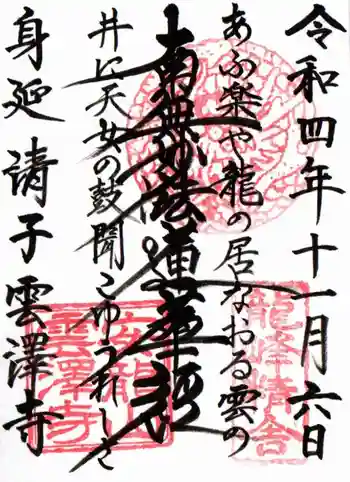 令和四年十一月六日
あふ楽や龍の居なおる雲の
南無妙法蓮華経
井に天女の鼓聞こゆうれしさ
身延 請子 雲澤寺
龍峰精舎
雲澤寺